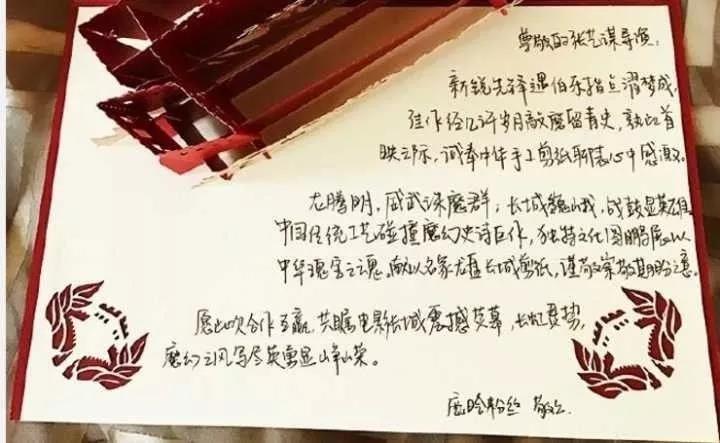 尊敬的张艺谋导演:
新锐先锋遇伯乐指点濯梦成,
佳作经几许岁月敲磨留青史,此首
映之际,诚奉中华手工剪纸聊表心中感激。
龙腾明,威武鹿群;长城巍峨,战鼓显英雄。
中国传统工艺碰撞魔幻史诗巨作,独特文化图鹏展以
中华瑰宝之魂,献以名家长城剪纸,谨致崇敬期盼之意。
愿此次合作互赢,共瞩电影长城震撼荧幕,长虹贯势,
魔幻之风写尽英勇显峥嵘。
鹿晗粉丝 敬上